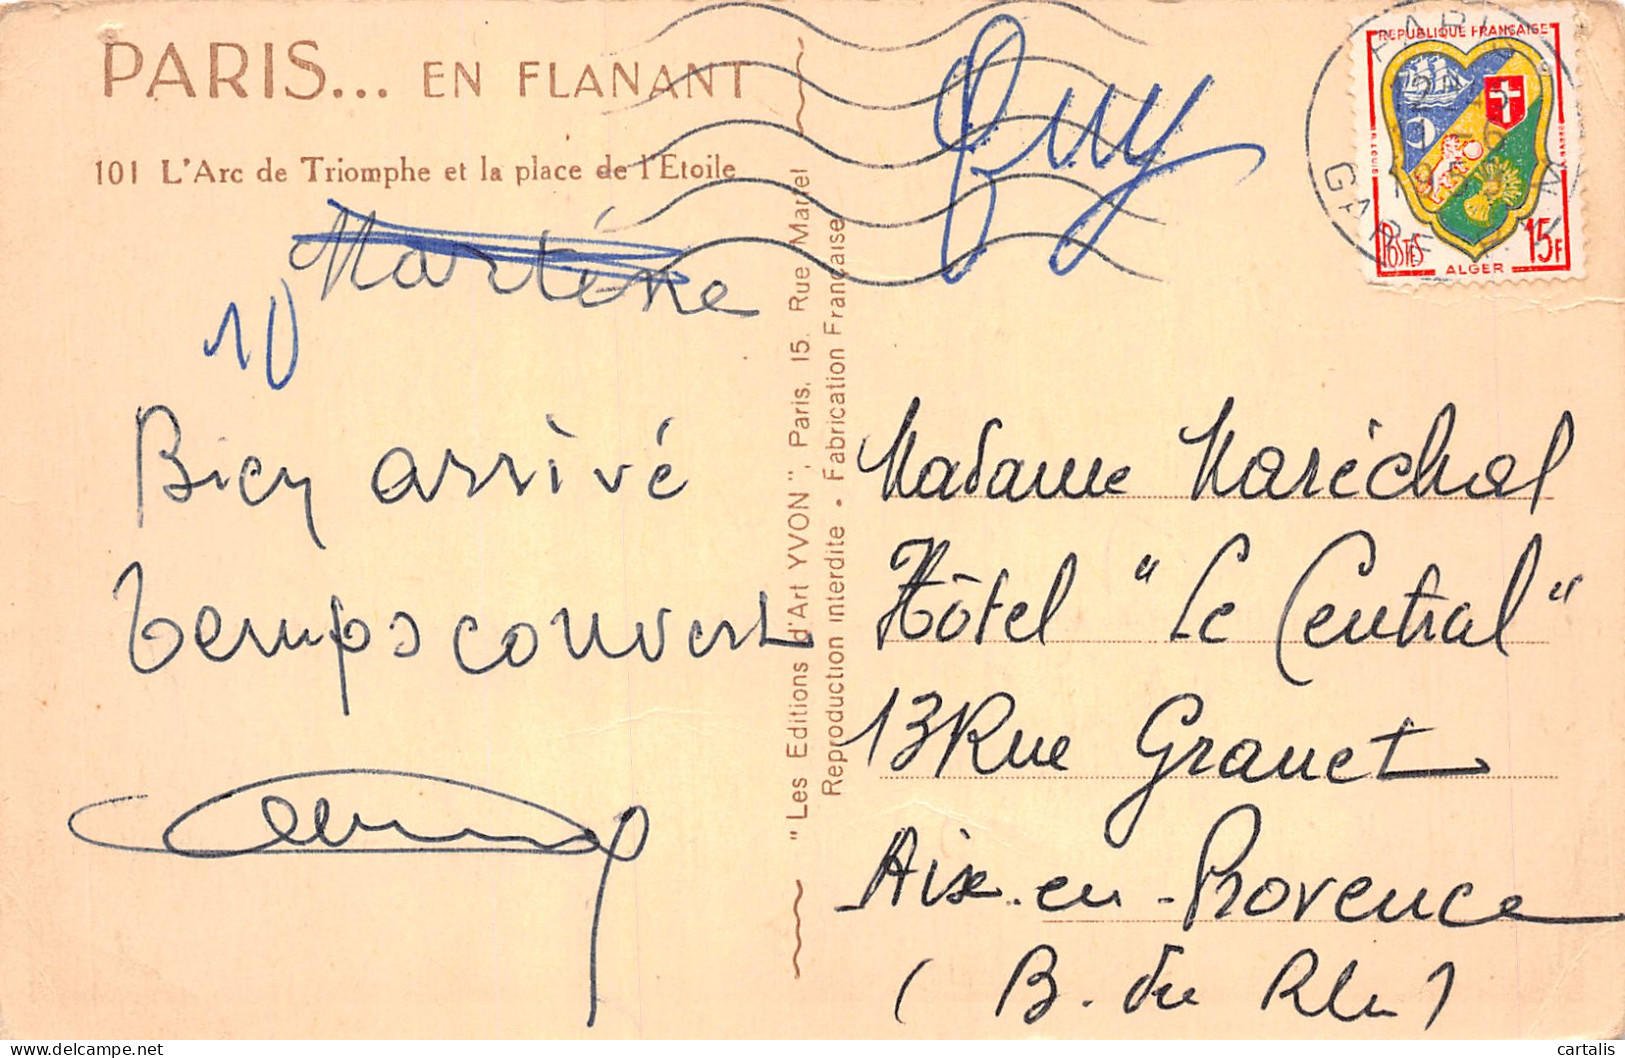 PARIS... EN FLANANT
101 L'Arc de Triomphe et la place de l'Etoile
Martine
10
Bien arrivé
temps couvert
Guy
"Les Editions d'Art YVON", Paris, 15, Rue Martel
Reproduction interdite • Fabrication Française
REPUBLIQUE FRANÇAISE
POSTES
ALGER
15F
PARIS
GARE
Madame Maréchal
Hôtel "Le Central"
13 Rue Granet
Aix-en-Provence
(B. du Rh)
cartalis